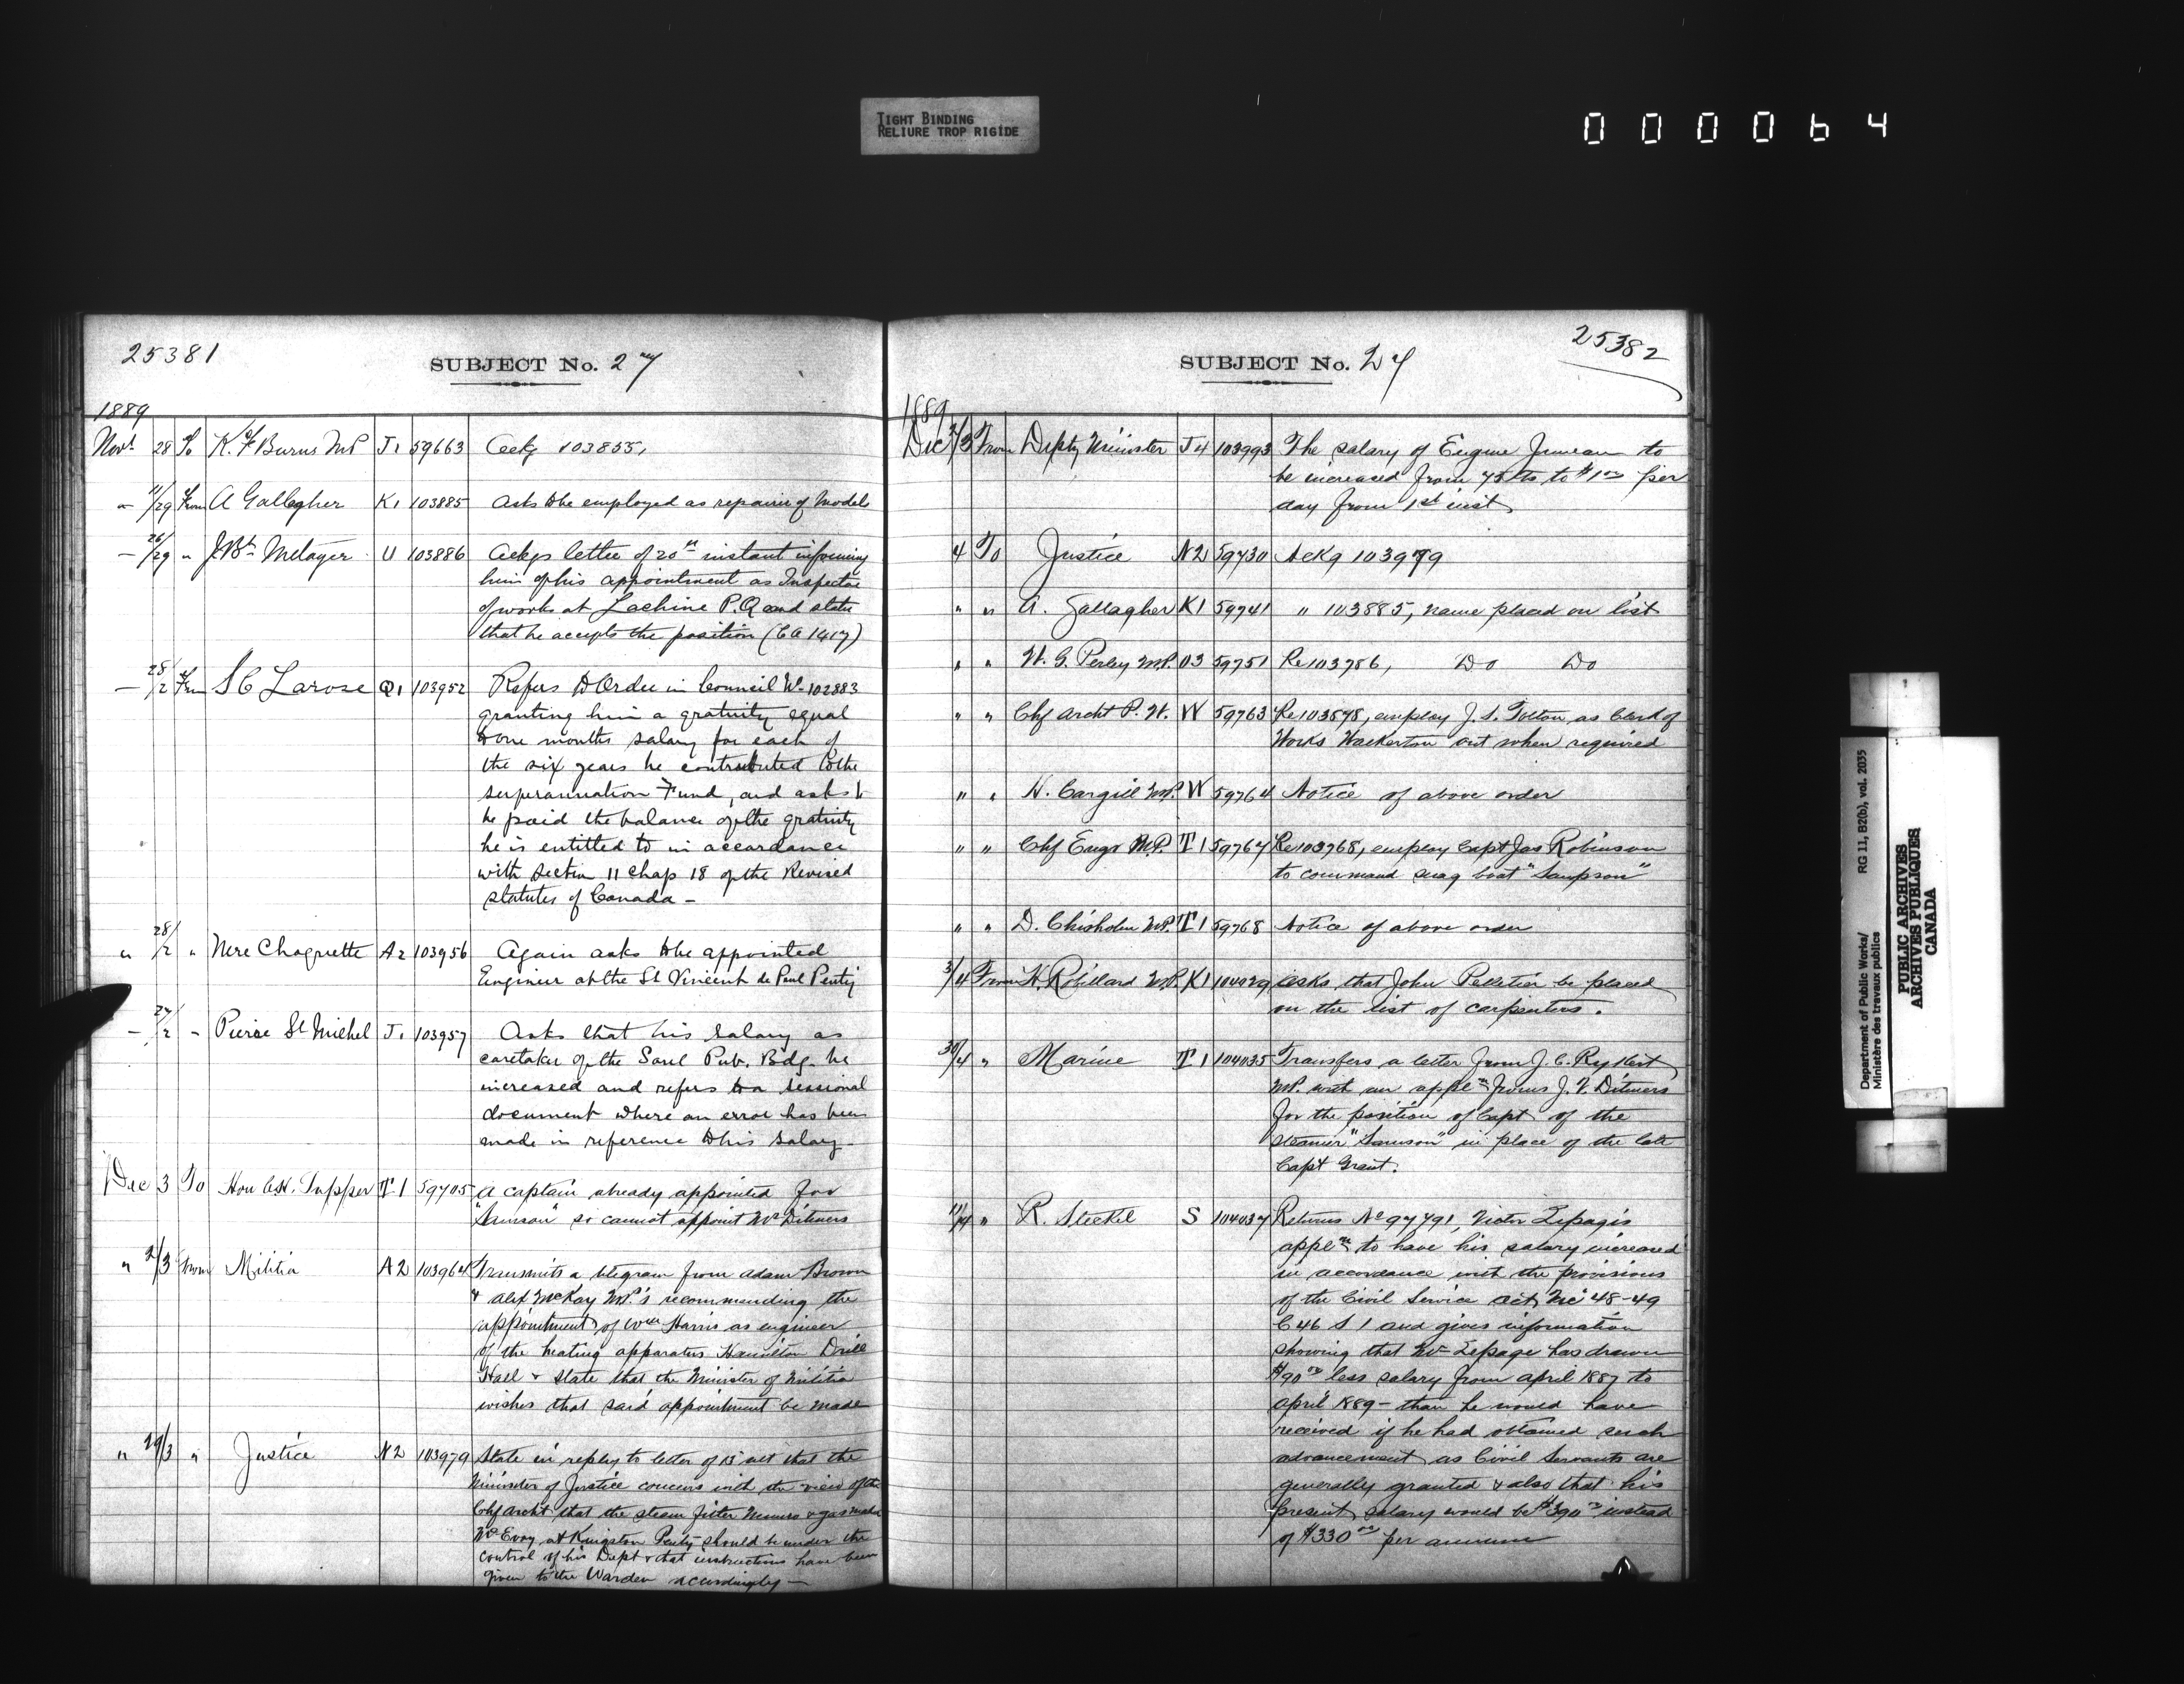 TIGHT BINDING
RELIURE TROP RIGIDE
000064
25381
SUBJECT No. 27
1889
Novr 28 To K. F Burns MP J1 59663 Ackg 103855,
" 11/29 From A Gallagher K1 103885 Asks to be employed as repairer of Models
" 26/29 " J. Bte Metayer U 103886 Ackgs letter of 20th instant informing
him of his appointment as Inspector
of works at Lachine P.Q and states
that he accepts the position (CA 1417)
" 28/2 From S C Larose Q1 103952 Refers to Order in Council No 102883
granting him a gratuity equal
to one months salary for each of
the six years he contributed to the
superannuation Fund, and asks to
be paid the balance of the gratuity
he is entitled to in accordance
with section 11 Chap 18 of the Revised
Statutes of Canada -
" 28/2 " Nere Choquette A2 103956 Again asks to be appointed
Engineer at the St Vincent de Paul Penty
" 27/2 " Pierre St Michel J1 103957 Asks that his salary as
caretaker of the Sorel Pub. Bdg. be
increased and refers to a sessional
document where an error has been
made in reference to his salary -
Dec 3 To Hon C.H. Tupper T1 59705 A captain already appointed for
"Samson" so cannot appoint Mr Ditmers
" 2/3 From Militia A2 103964 Transmits a telegram from Adam Brown
& Alex McKay MP.'s recommending the
appointment of Wm Harris as engineer
of the heating apparatus Hamilton Drill
Hall & state that the Minister of Militia
wishes that said appointment be made
" 29/3 " Justice N2 103979 State in reply to letter of 13 ult that the
Minister of Justice concurs with the view of the
Chf Archt that the steam fitter Munro & gas maker
McEvoy at Kingston Penty should be under the
control of his Dept & that instructions have been
given to the Warden accordingly -
25382
SUBJECT No. 27
1889
Dec 2/3 From Depty Minister J4 103993 The salary of Eugene Juneau to
be increased from 75 cts to $1.00 per
day from 1st inst
4 To Justice N2 59730 Ackg 103979
" " A. Gallagher K1 59741 " 103885, name placed on list
" " W. G. Perley M.P. O3 59751 Re 103756, Do Do
" " Chf Archt P. W. W 59763 Re 103578, employ J. S. Tolton, as Clerk of
Works Walkerton out when required
" " H. Cargill M.P. W 59764 Notice of above order
" " Chf Engr M.P. T1 59767 Re 103768, employ Capt Jas Robinson
to command snag boat "Sampson"
" " D. Chisholm M.P. T1 59768 Notice of above order
3/4 From H. Robillard M.P. K1 104029 Asks that John Pelletier be placed
on the list of carpenters.
30/4 " Marine T1 104035 Transfers a letter from J. C. Rykert
MP. with an appln from J. V. Ditmers
for the position of Capt of the
steamer "Samson" in place of the late
Capt Grant.
" R. Steckel S 104037 Returns No 97791, Victor Lepage's
appln to have his salary increased
in accordance with the provisions
of the Civil Service act, Vic 48-49
C 46 S 1 and gives information
showing that Mr Lepage has drawn
$90.00 less salary from April 1887 to
April 1889 - than he would have
received if he had obtained such
advancement as Civil Servants are
generally granted & also that his
present salary would be $390.00 instead
of $330.00 per annum
Department of Public Works/ RG 11, B2(b), vol. 2035
Ministère des travaux publics
PUBLIC ARCHIVES
ARCHIVES PUBLIQUES
CANADA